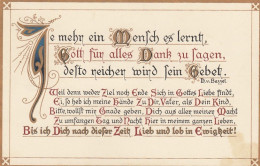 Je mehr ein Mensch es lernt,
Gott für alles Dank zu sagen,
desto reicher wird sein Gebet.
D. v. Bezzel.
Weil denn weder Ziel noch Ende Sich in Gottes Liebe findt,
Ei, so heb ich meine Hände Zu Dir, Vater, als Dein Kind,
Bitte, wollst mir Gnade geben, Dich aus aller meiner Macht
Zu umfangen Tag und Nacht Hier in meinem ganzen Leben,
Bis ich Dich nach dieser Zeit Lieb und lob in Ewigkeit!